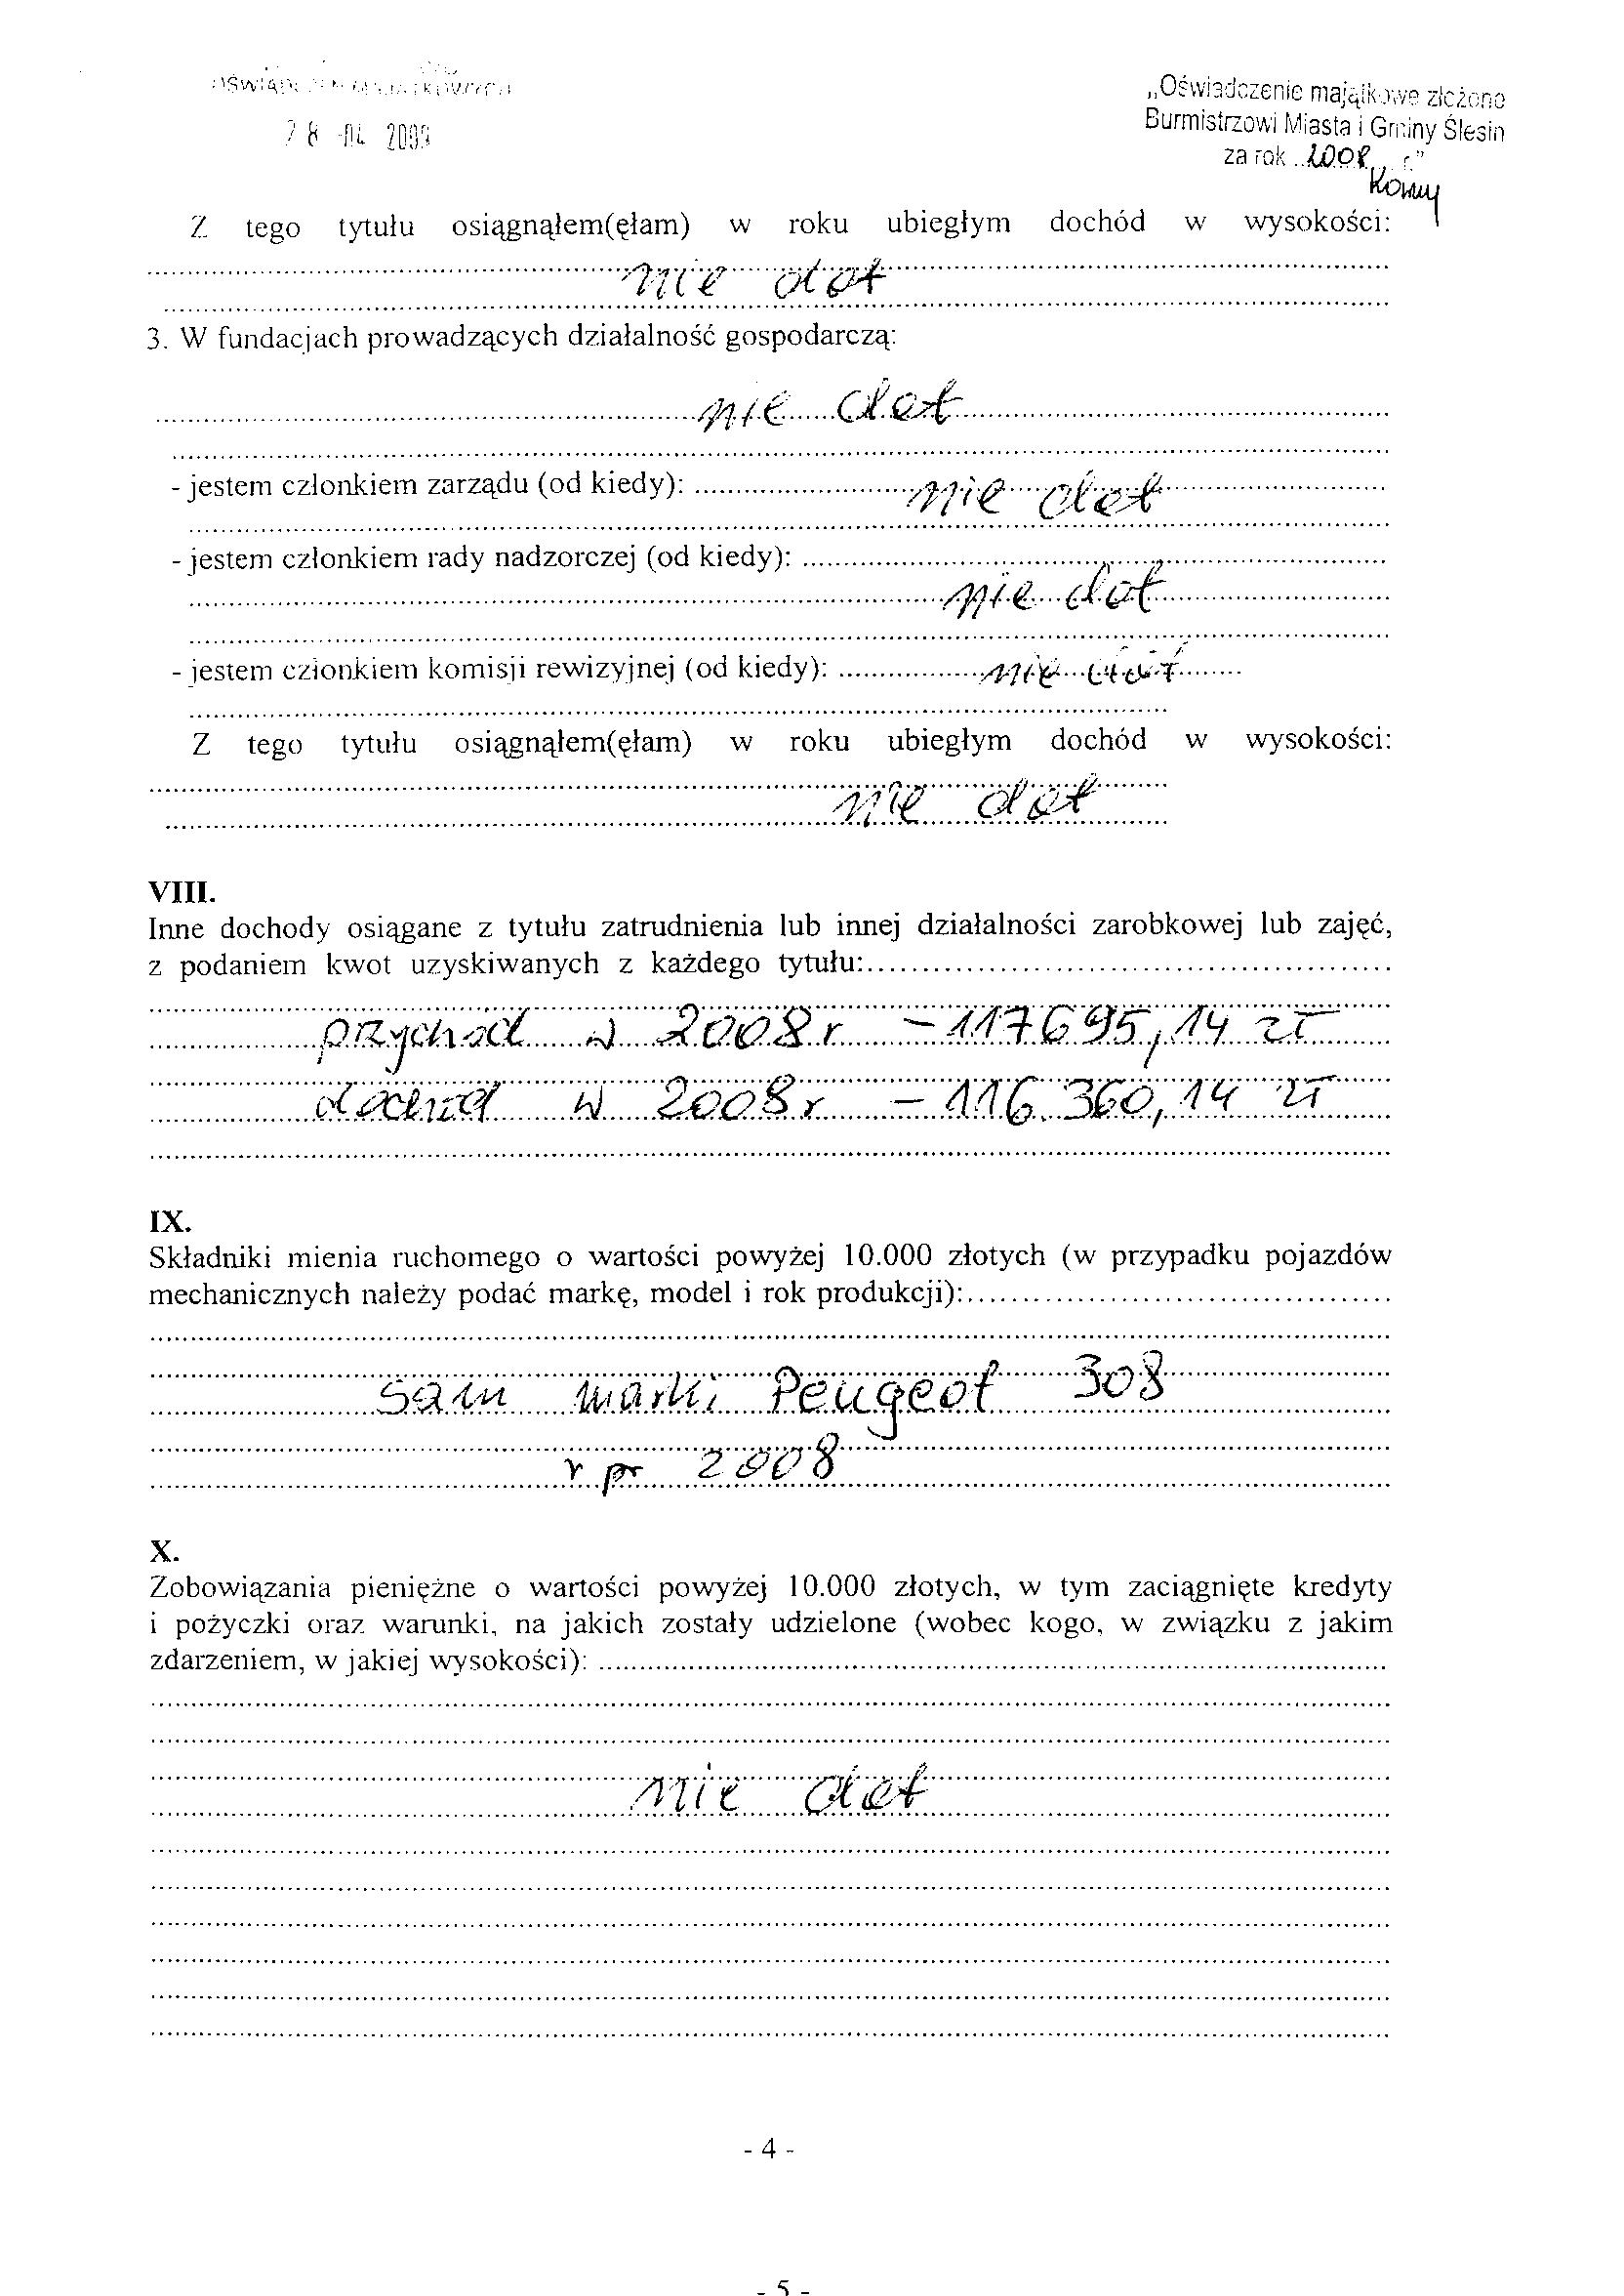 „Oświadczenie majątkowe złożone
Burmistrzowi Miasta i Gminy Ślesin
28 -04- 2009
za rok 2008 r."
Z tego tytułu osiągnąłem(ęłam) w roku ubiegłym dochód w wysokości:
nie dot
3. W fundacjach prowadzących działalność gospodarczą:
nie dot
- jestem członkiem zarządu (od kiedy): nie dot
- jestem członkiem rady nadzorczej (od kiedy):
nie dot
- jestem członkiem komisji rewizyjnej (od kiedy): nie dot
Z tego tytułu osiągnąłem(ęłam) w roku ubiegłym dochód w wysokości:
nie dot
VIII.
Inne dochody osiągane z tytułu zatrudnienia lub innej działalności zarobkowej lub zajęć,
z podaniem kwot uzyskiwanych z każdego tytułu:
przychód w 2008r – 117695,14 zł
dochód w 2008r – 116.360,14 zł
IX.
Składniki mienia ruchomego o wartości powyżej 10.000 złotych (w przypadku pojazdów
mechanicznych należy podać markę, model i rok produkcji):
sam marki Peugeot 308
r pr 2008
X.
Zobowiązania pieniężne o wartości powyżej 10.000 złotych, w tym zaciągnięte kredyty
i pożyczki oraz warunki, na jakich zostały udzielone (wobec kogo, w związku z jakim
zdarzeniem, w jakiej wysokości):
nie dot
- 4 -
- 5 -